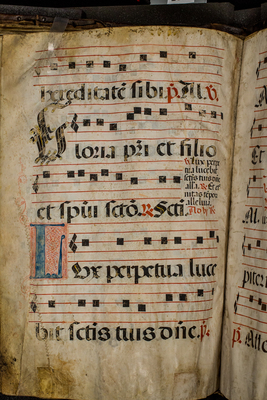 hereditatē sibi p̄. All. v̄.
Gloria p̄ri et filio
et sp̄ui sctō. Scti.
Lux perpetua luce
bit sctis tuis dn̄e. p̄.
Lux perpe
tua lucebit
sctis tuis dn̄e
alla. Et et
nitas tēpor
alleluia.